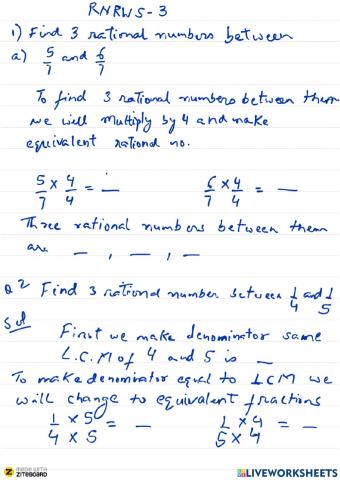 RNRWS-3
1) Find 3 rational numbers between
a) 5/7 and 6/7
To find 3 rational numbers between them
we will multiply by 4 and make
equivalent rational no.
5/7 × 4/4 = — 6/7 × 4/4 = —
Three rational numbers between them
are — , — , —
Q2 Find 3 rational number between 1/4 and 1/5
Sol First we make denominator same
L.C.M of 4 and 5 is —
To make denominator equal to LCM we
will change to equivalent fractions
1 × 5 / 4 × 5 = — 1 × 4 / 5 × 4 = —
MADE WITH
ZITEBOARD
LIVEWORKSHEETS